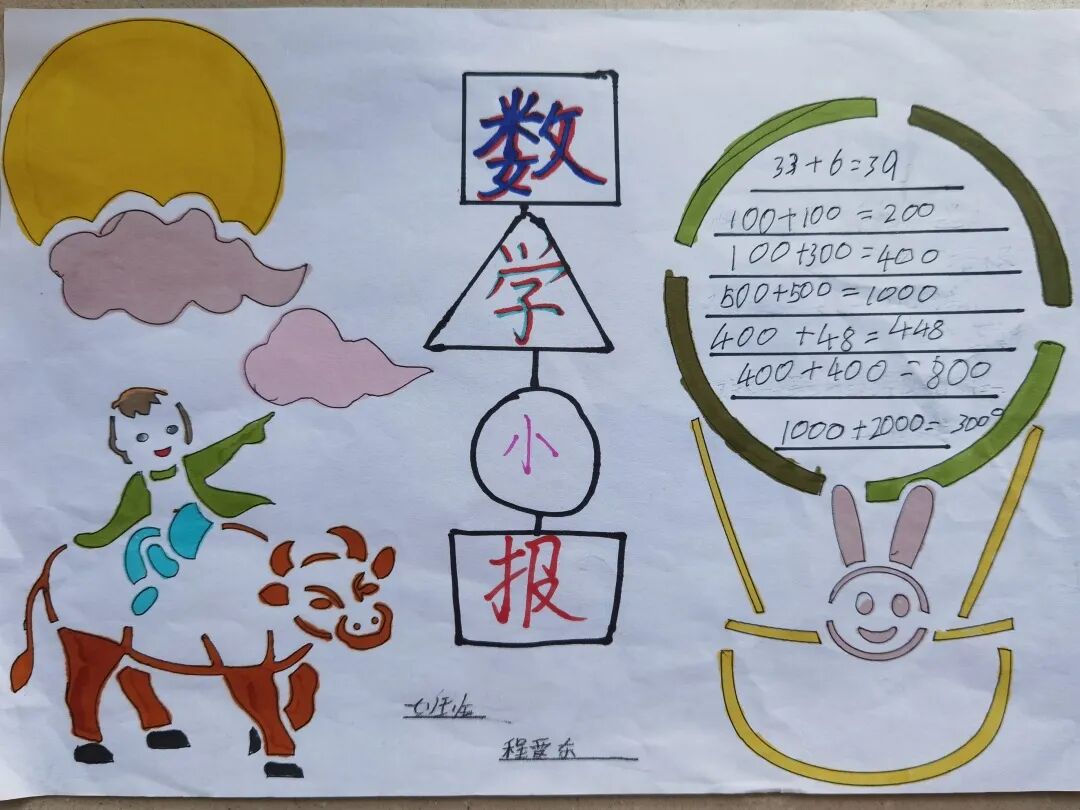 数
学
小
报
33+6=39
100+100=200
100+300=400
500+500=1000
400+48=448
400+400=800
1000+2000=3000
程爱东